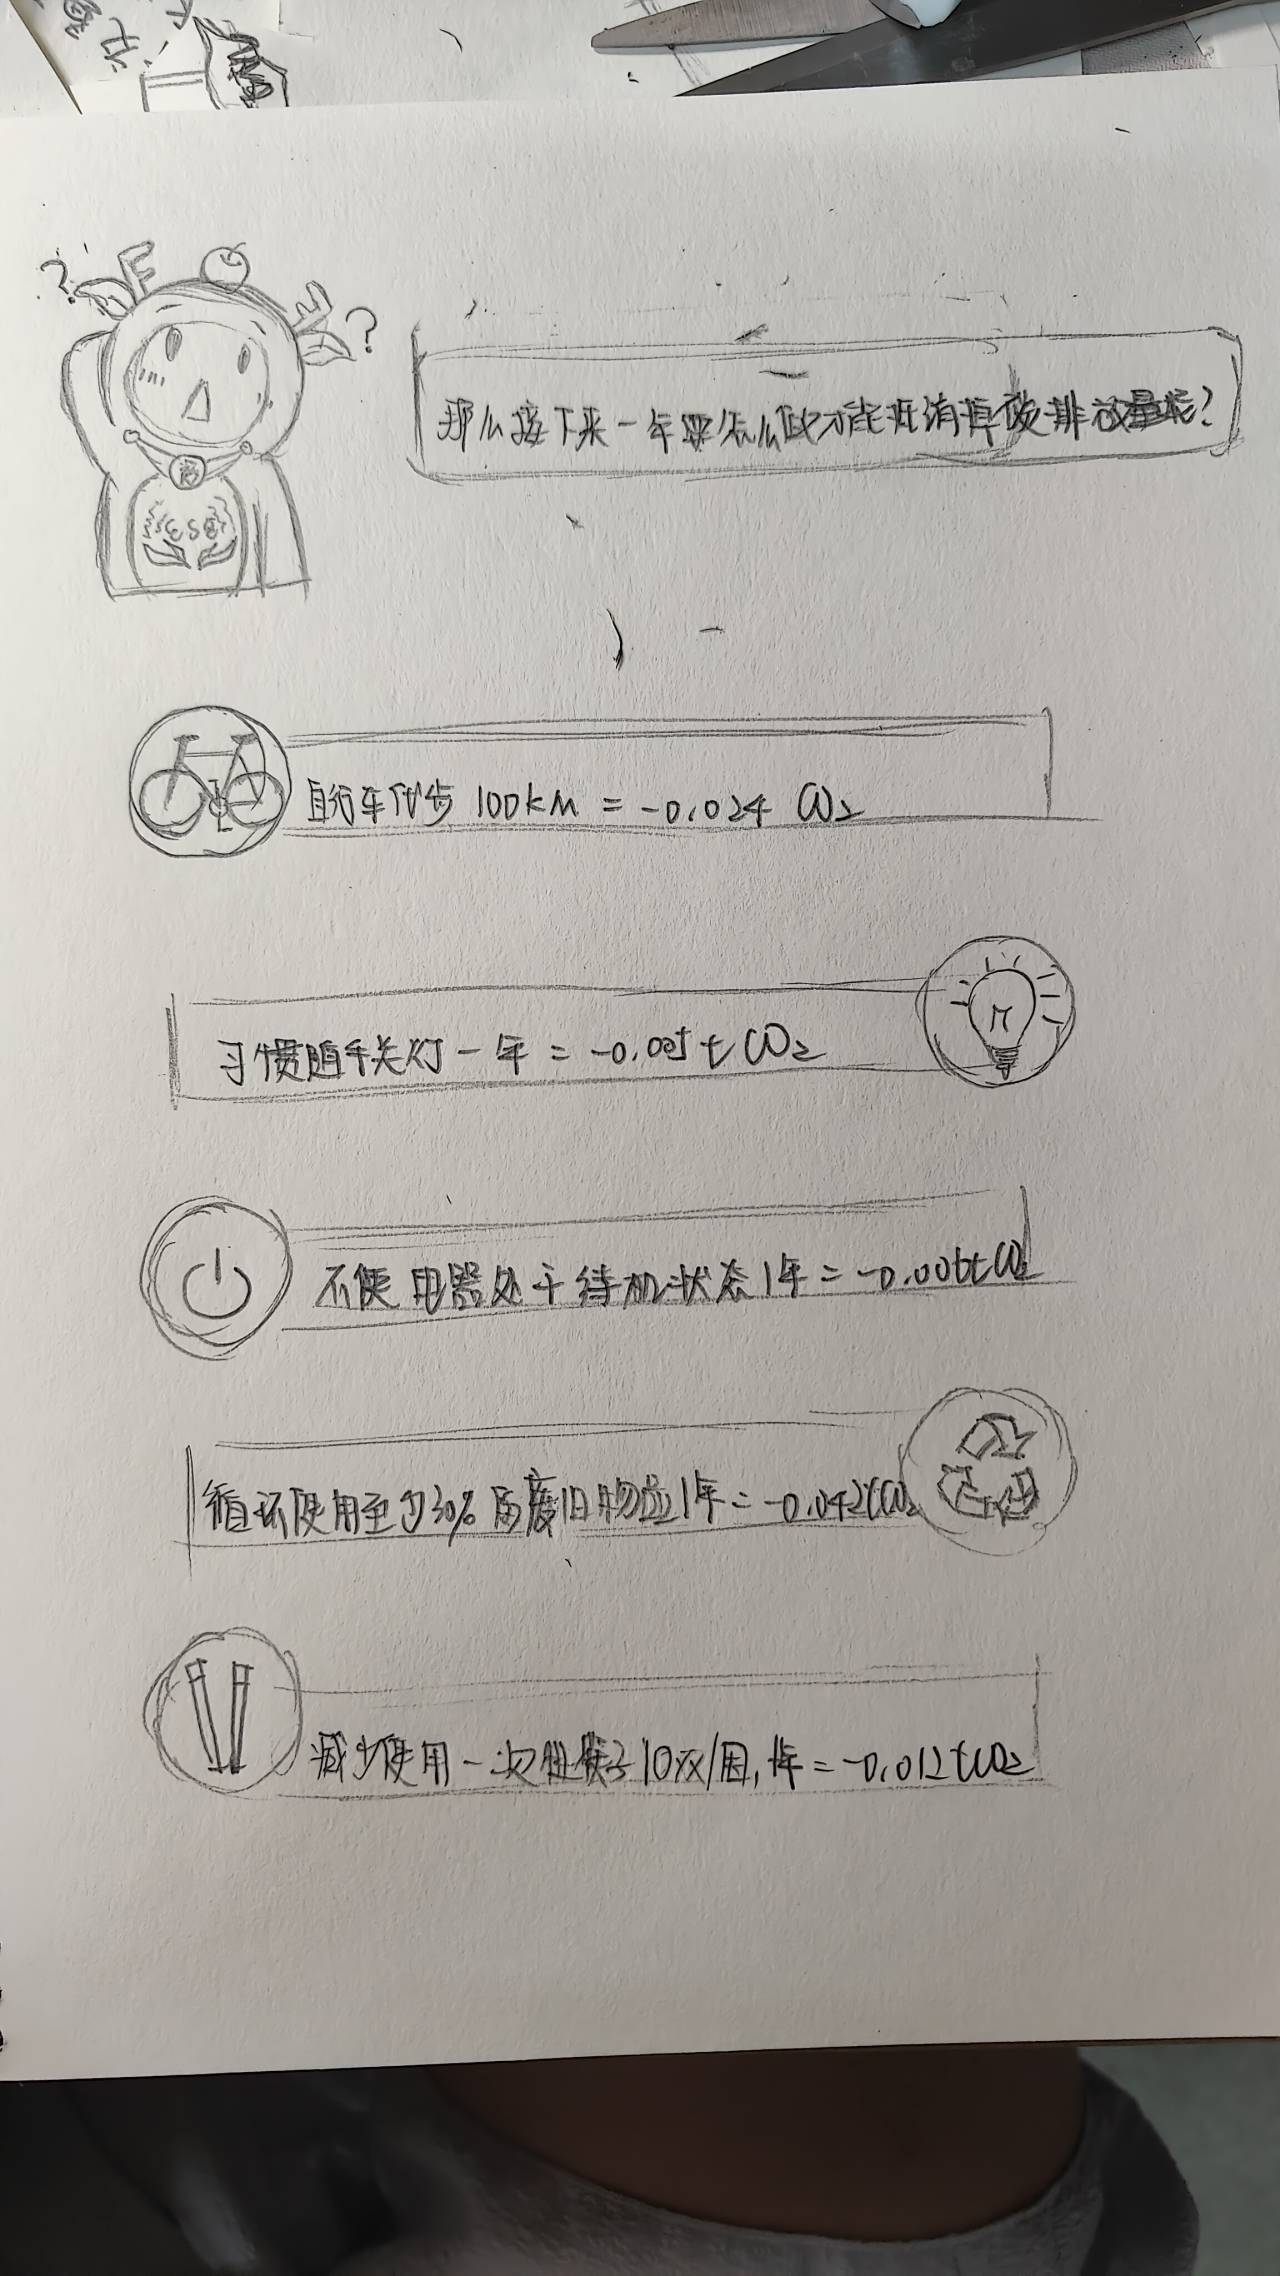 那么接下来一年要怎么做才能抵消掉碳排放量呢?
ESG
自行车代步 100km = -0.024 CO₂
习惯随手关灯一年 = -0.005 t CO₂
不使电器处于待机状态1年 = -0.006tCO₂
循环使用至少30%的废旧物品1年 = -0.042tCO₂
减少使用一次性筷子10双/周,1年 = -0.012tCO₂